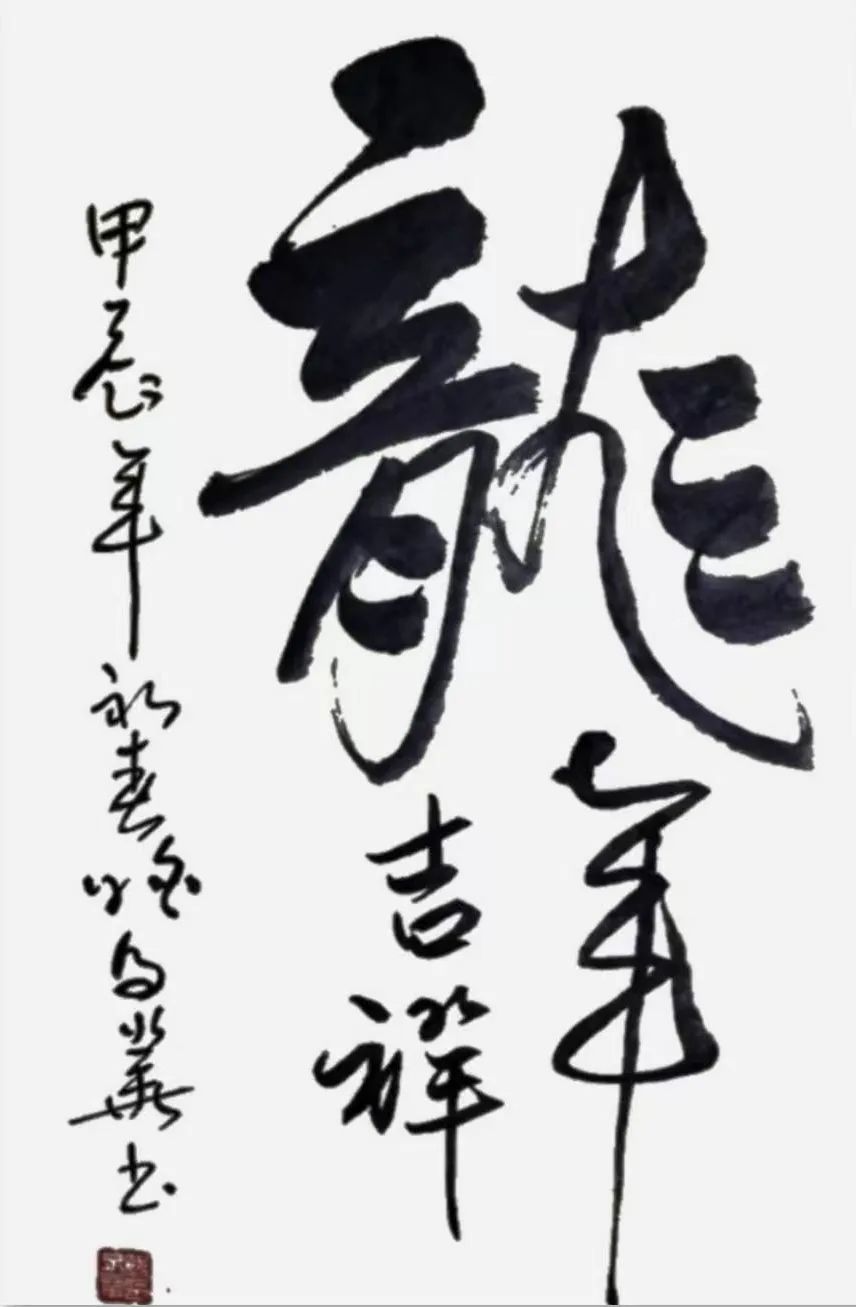 龍年
吉祥
甲辰年初春书